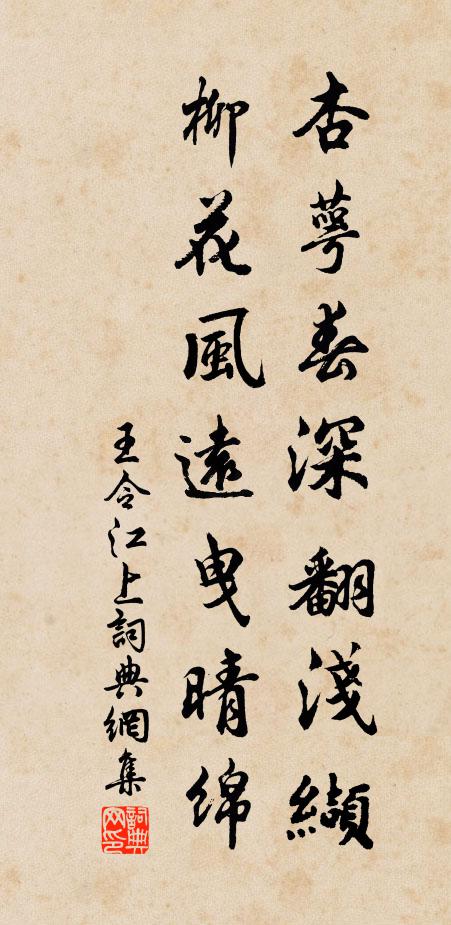 杏萼春深翻淺纈
柳花風遠曳晴綿
王令江上詞典網集
詞典網印